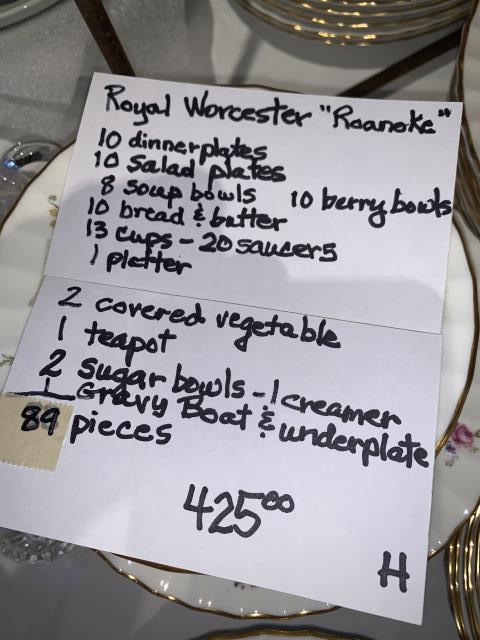 Royal Worcester "Roanoke"
10 dinnerplates
10 salad plates
8 soup bowls 10 berry bowls
10 bread & butter
13 cups - 20 saucers
1 platter
2 covered vegetable
1 teapot
2 sugar bowls - 1 creamer
1 Gravy Boat & underplate
89 pieces
425⁰⁰
H